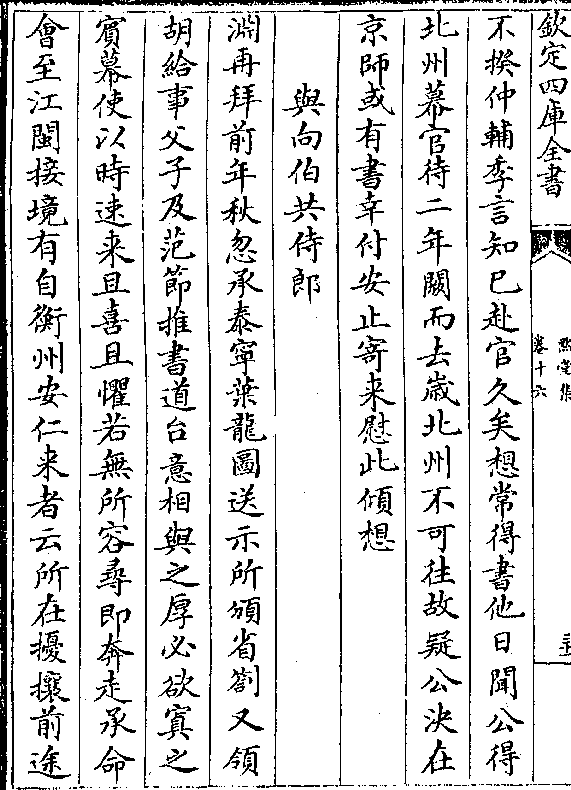 欽定四庫全書
卷十六
不揆仲輔季言知已赴官久矣想常得書他日聞公得
北州幕官待二年闕而去歲北州不可往故疑公決在
京師或有書幸付安止寄来慰此傾想
與向伯共侍郎
淵再拜前年秋忽承泰寧葉龍圖送示所頒省劄又領
胡給事父子及范節推書道台意相與之厚必欲寘之
賓幕使以時速来且喜且懼若無所容尋即奔走承命
會至江閩接境有自衡州安仁来者云所在擾攘前途